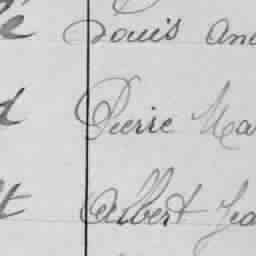 é Louis An
d Pierre Ma
t Albert Jea